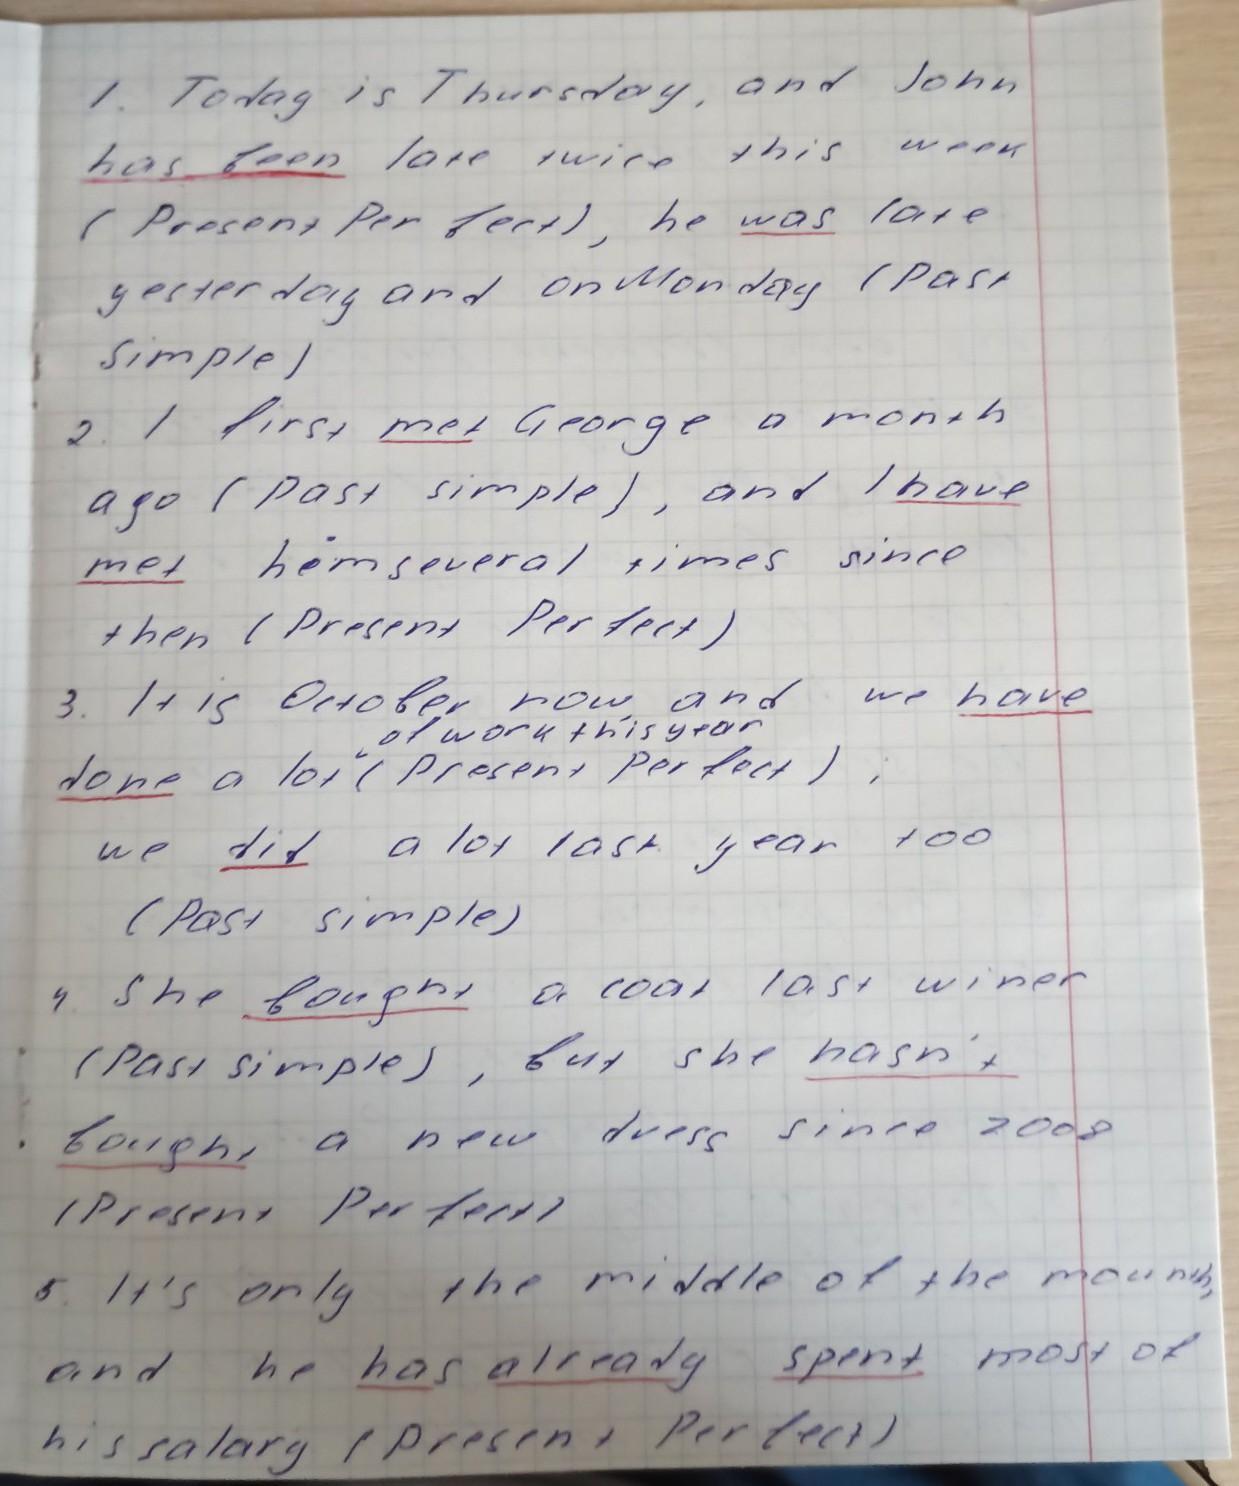 1. Today is Thursday, and John
has been late twice this week
(Present Perfect), he was late
yesterday and on Monday (Past
simple)
2. I first met George a month
ago (Past simple), and I have
met him several times since
then (Present Perfect)
3. It is October now, and we have
of work this year
done a lot (Present Perfect),
we did a lot last year too
(Past simple)
4. She bought a coat last winer
(Past simple), but she hasn't
bought a new dress since 2008
(Present Perfect)
5. It's only the middle of the mounth,
and he has already spent most of
his salary (Present Perfect)